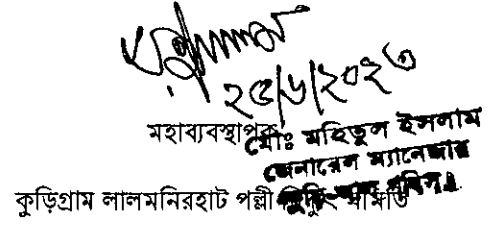 ২৫/৬/২০২৩
মহাব্যবস্থাপক
মোঃ মহিতুল ইসলাম
জেনারেল ম্যানেজার
কুড়িগ্রাম লালমনিরহাট পল্লী বিদ্যুৎ সমিতি